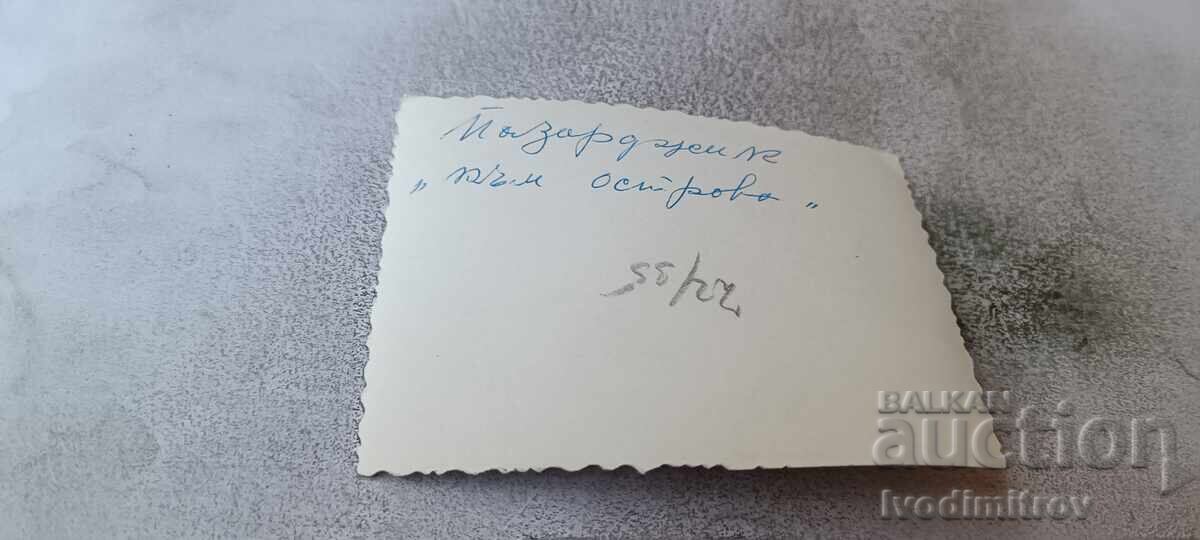 Пазарджик
„към острова"
BALKAN
auction
Ivodimitrov